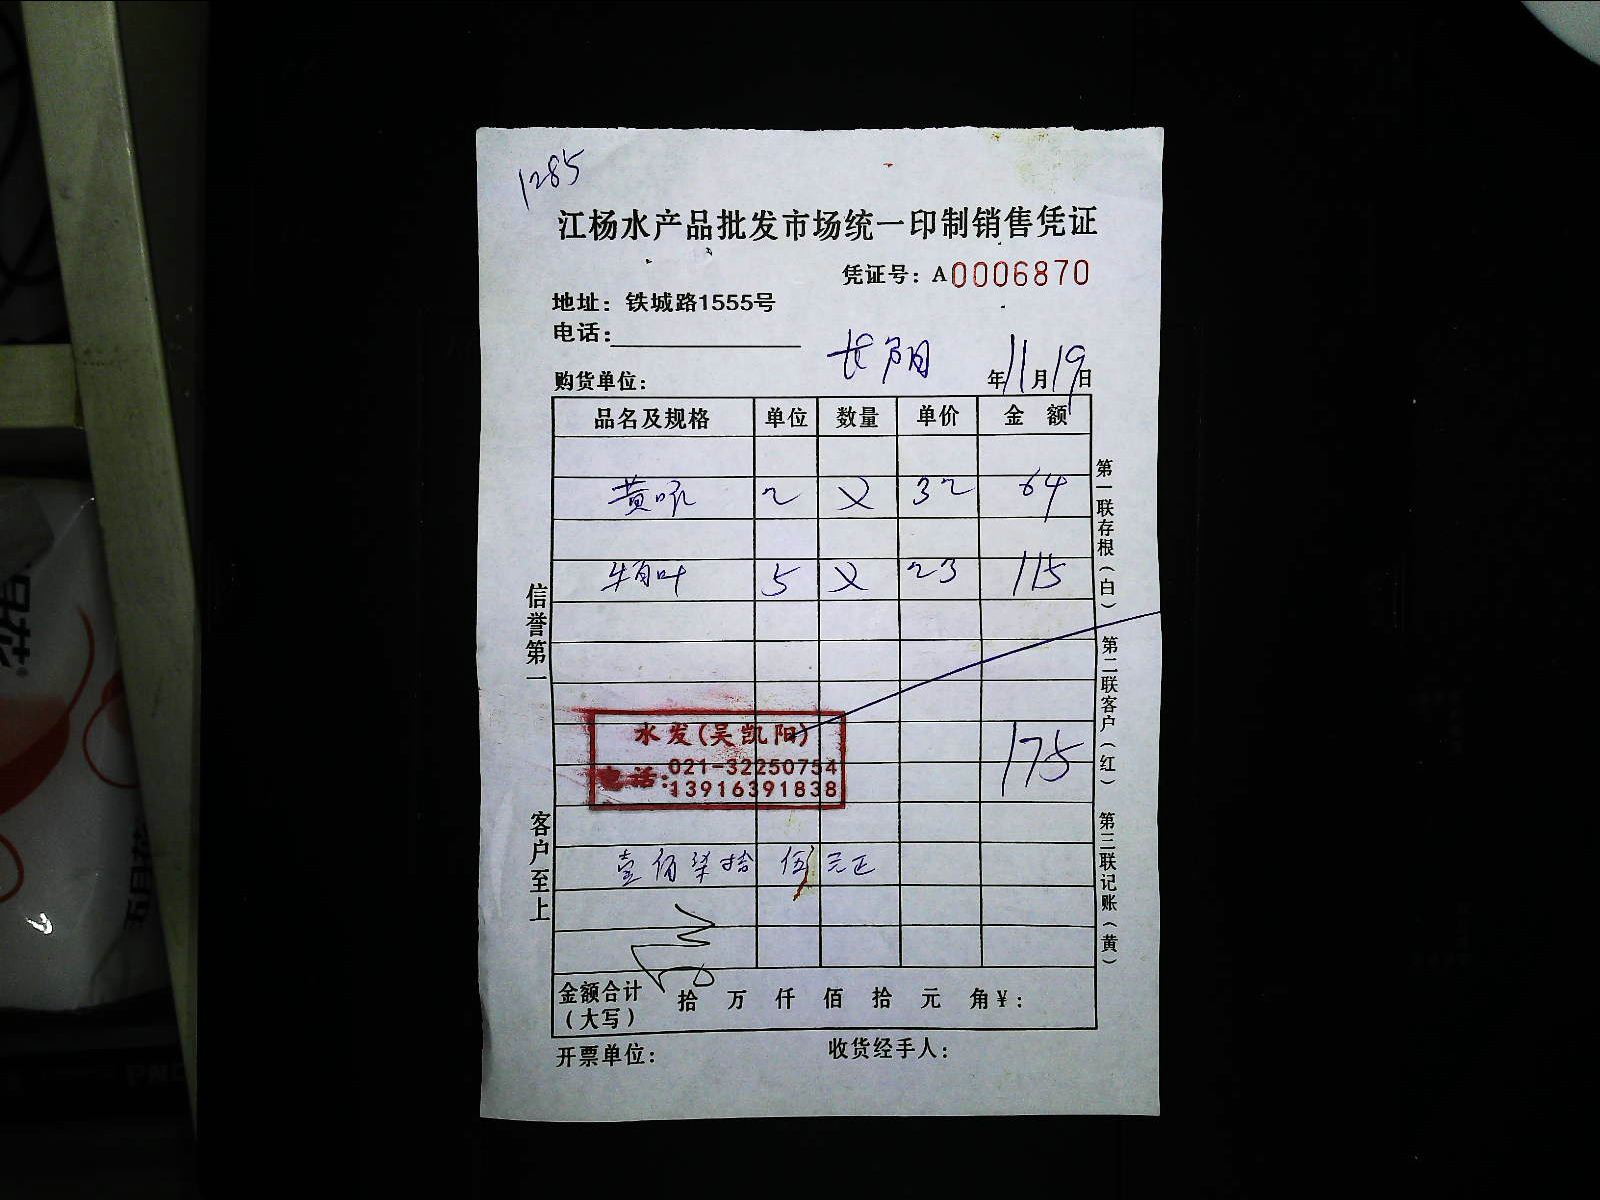 1285
江杨水产品批发市场统一印制销售凭证
凭证号：A0006870
地址：铁城路1555号
电话：
长阳
购货单位： 年11月19日
品名及规格 单位 数量 单价 金额
黄 2 又 32 64
叶 5 又 23 115
175
水发(吴凯阳)
电话：021-32250754
13916391838
壹佰柒拾伍元正
金额合计（大写） 拾 万 仟 佰 拾 元 角 ¥：
开票单位： 收货经手人：
信誉第一
客户至上
第一联存根（白）
第二联客户（红）
第三联记账（黄）